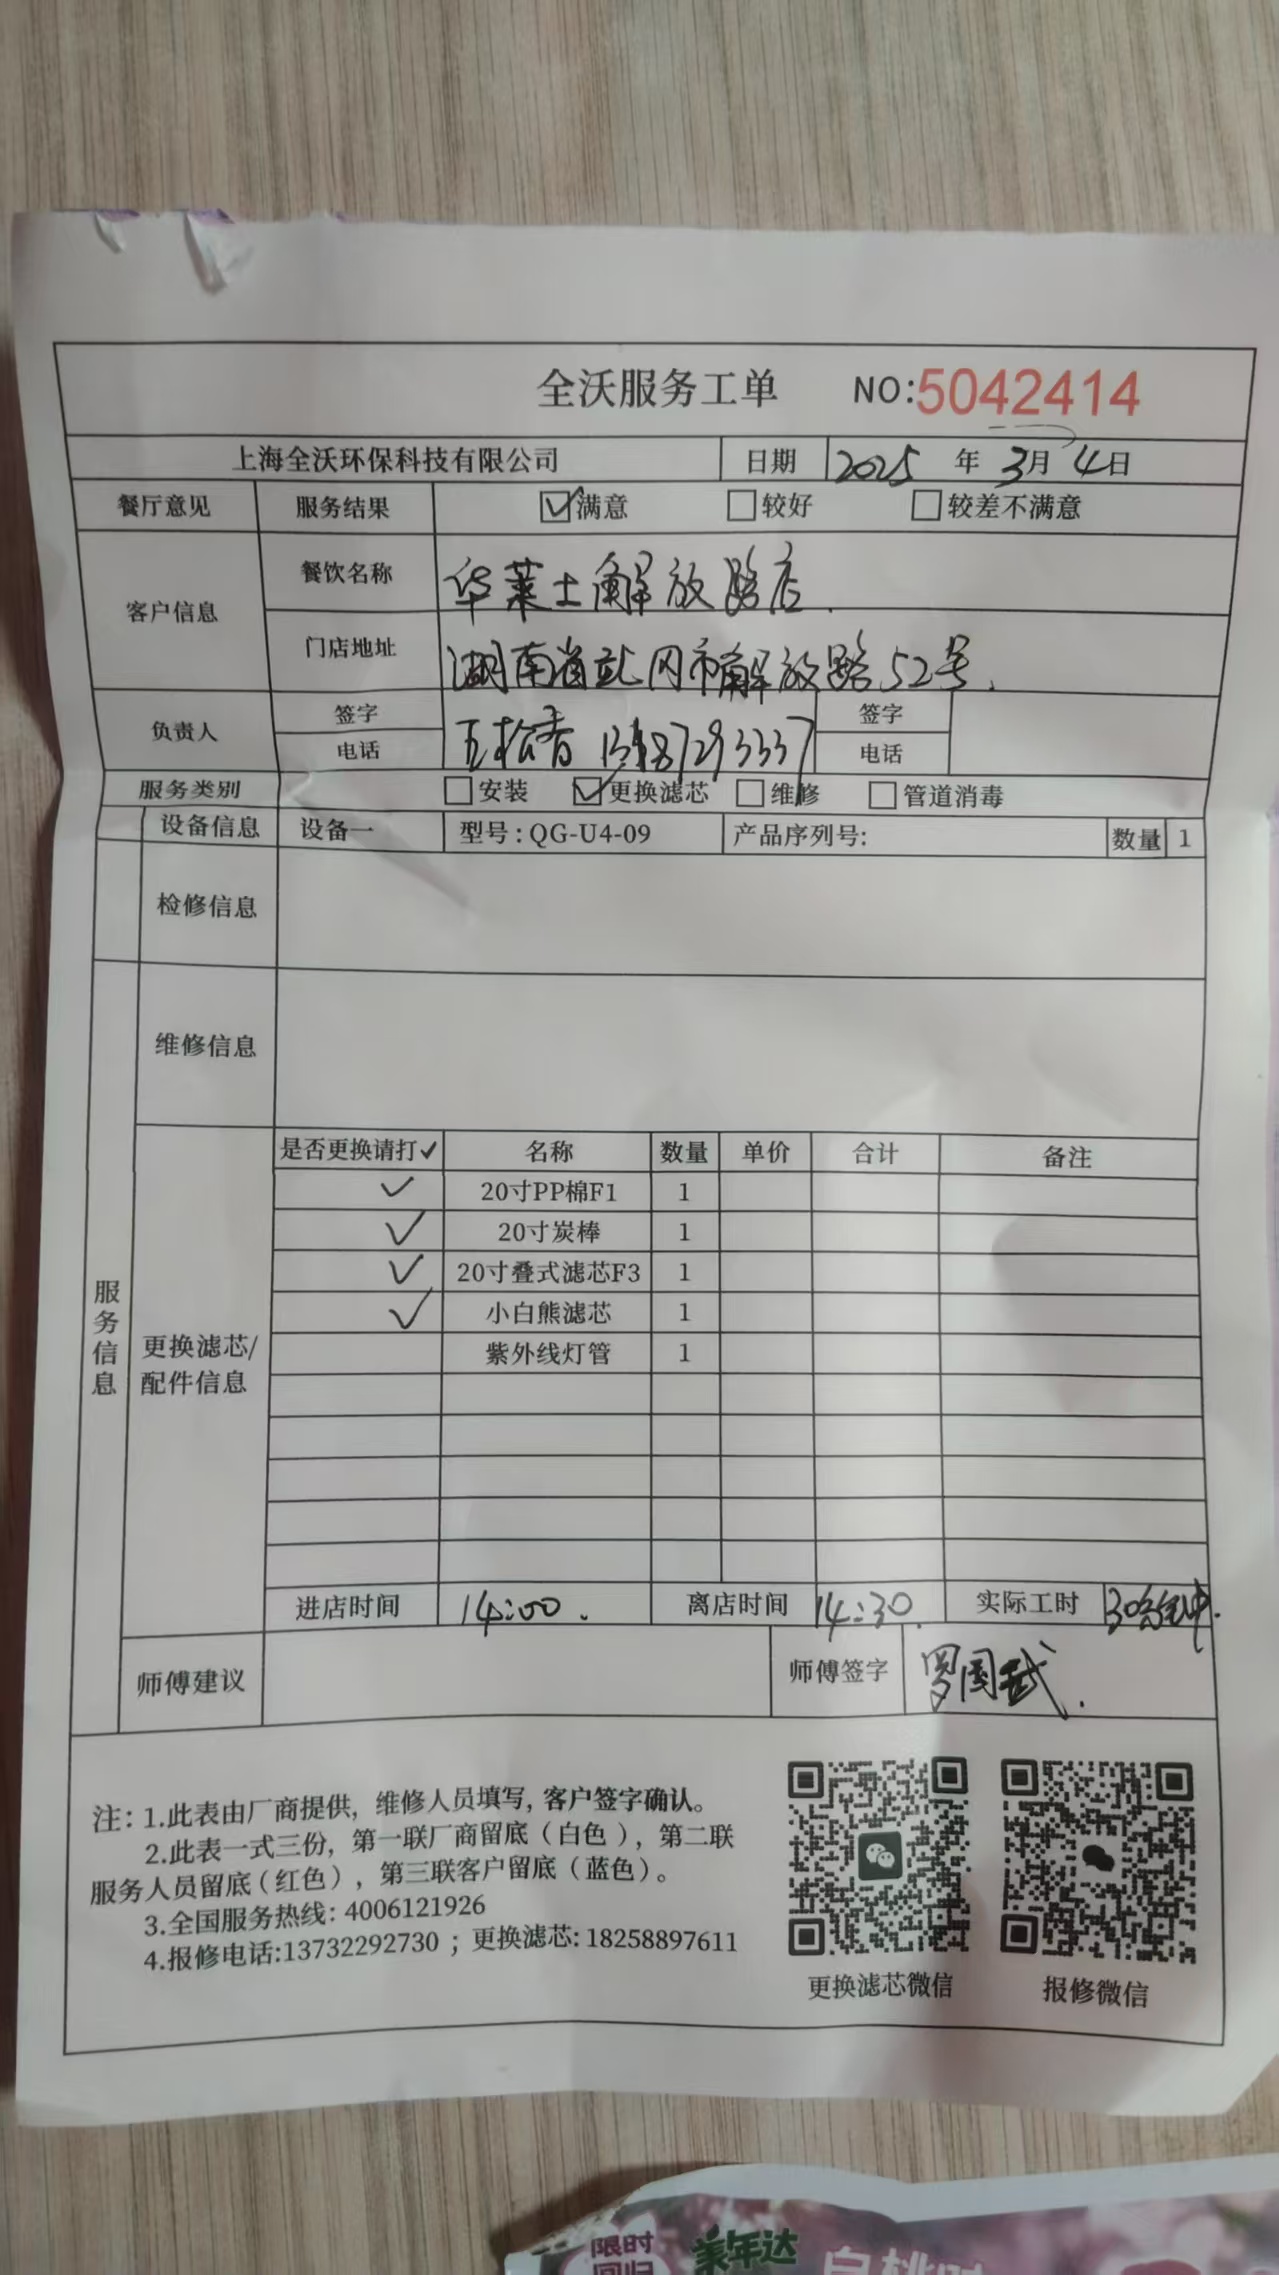 全沃服务工单 NO:5042414
上海全沃环保科技有限公司 日期 2025 年 3月 4日
餐厅意见 服务结果 ☑满意 □较好 □较差不满意
客户信息 餐饮名称 华莱士解放路店.
门店地址 湖南省武冈市解放路52号.
负责人 签字 签字
电话 电话
服务类别 □安装 ☑更换滤芯 □维修 □管道消毒
设备信息 设备一 型号:QG-U4-09 产品序列号: 数量 1
检修信息
维修信息
服务信息
更换滤芯/
配件信息
是否更换请打✓ 名称 数量 单价 合计 备注
✓ 20寸PP棉F1 1
✓ 20寸炭棒 1
✓ 20寸叠式滤芯F3 1
✓ 小白熊滤芯 1
紫外线灯管 1
进店时间 14:00. 离店时间 14:30. 实际工时 30分钟.
师傅建议 师傅签字 罗国武.
注: 1.此表由厂商提供, 维修人员填写, 客户签字确认。
2.此表一式三份, 第一联厂商留底(白色), 第二联
服务人员留底(红色), 第三联客户留底(蓝色)。
3.全国服务热线: 4006121926
4.报修电话:13732292730 ; 更换滤芯: 18258897611
更换滤芯微信 报修微信
限时 美年达
回归